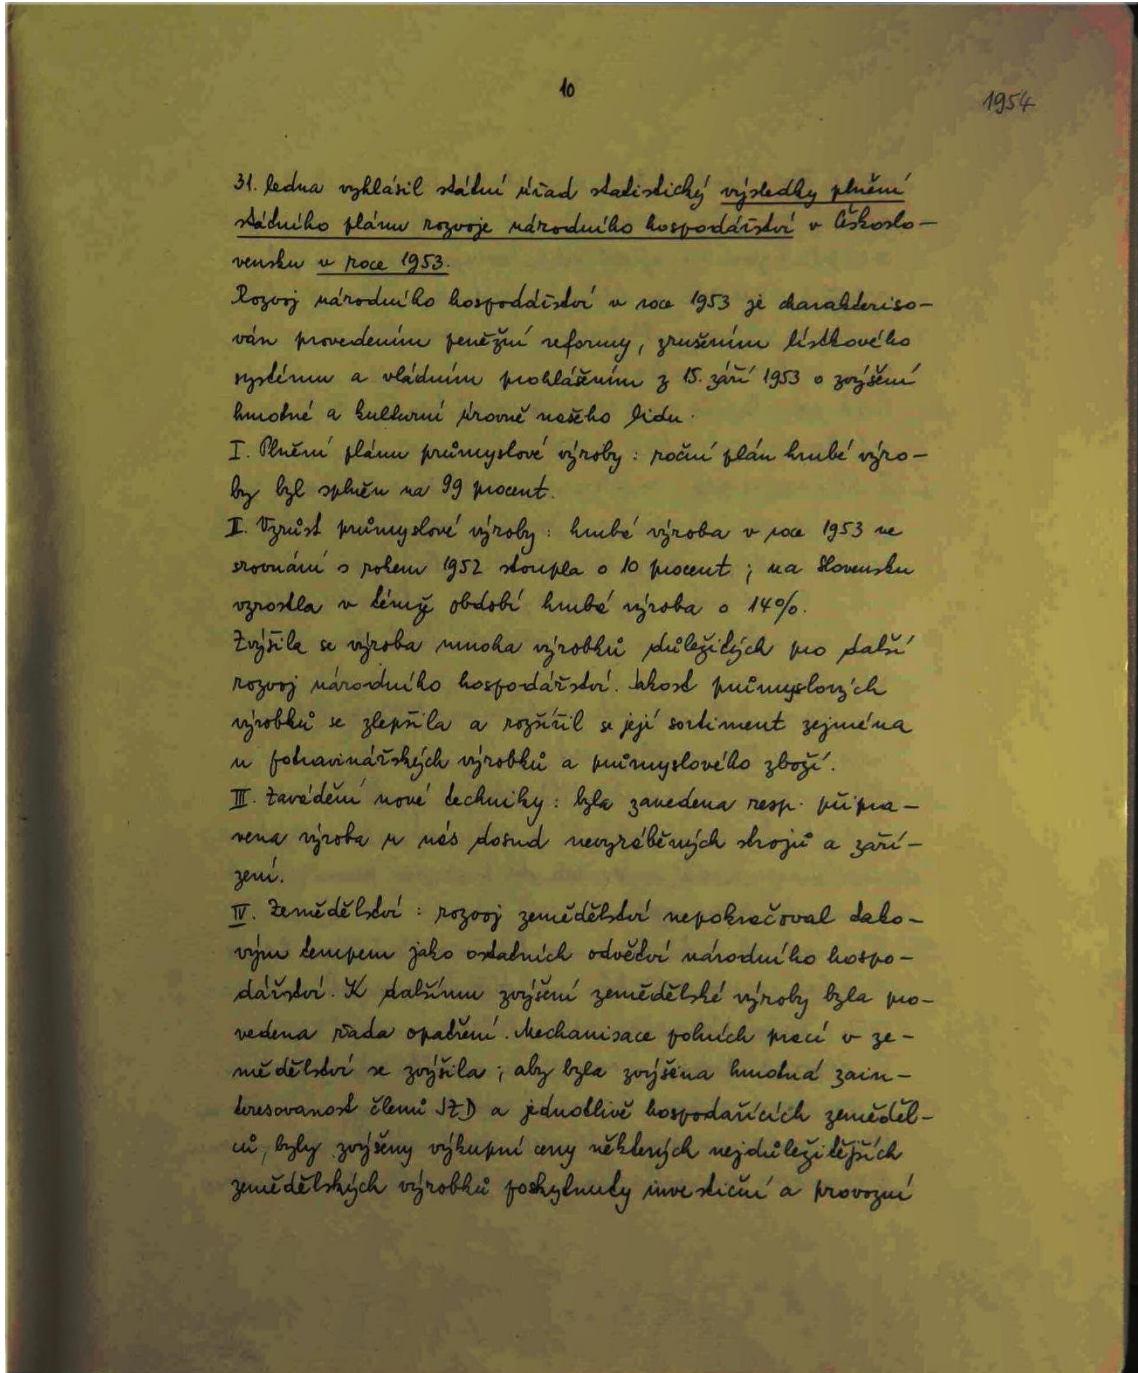 10
1954
31. ledna vyhlásil státní úřad statistický výsledky plnění
státního plánu rozvoje národního hospodářství v Českoslo-
vensku v roce 1953.
Rozvoj národního hospodářství v roce 1953 je charakteriso-
ván provedením peněžní reformy, zrušením lístkového
systému a vládním prohlášením z 15. září 1953 o zvýšení
hmotné a kulturní úrovně našeho lidu.
I. Plnění plánu průmyslové výroby: roční plán hrubé výro-
by byl splněn na 99 procent.
II. Vzrůst průmyslové výroby: hrubá výroba v roce 1953 ve
srovnání s rokem 1952 stoupla o 10 procent; na Slovensku
vzrostla v témže období hrubá výroba o 14%.
Zvýšila se výroba mnoha výrobků důležitých pro další
rozvoj národního hospodářství. Jakost průmyslových
výrobků se zlepšila a rozšířil se její sortiment zejména
u potravinářských výrobků a průmyslového zboží.
III. Zavádění nové techniky: byla zavedena resp. připra-
vena výroba u nás dosud nevyráběných strojů a zaří-
zení.
IV. Zemědělství: rozvoj zemědělství nepokračoval tako-
vým tempem jako ostatních odvětví národního hospo-
dářství. K dalšímu zvýšení zemědělské výroby byla pro-
vedena řada opatření. Mechanisace polních prací v ze-
mědělství se zvýšila; aby byla zvýšena hmotná zain-
teresovanost členů JZD a jednotlivě hospodařících zeměděl-
ců, byly zvýšeny výkupní ceny některých nejdůležitějších
zemědělských výrobků poskytnuty investiční a provozní